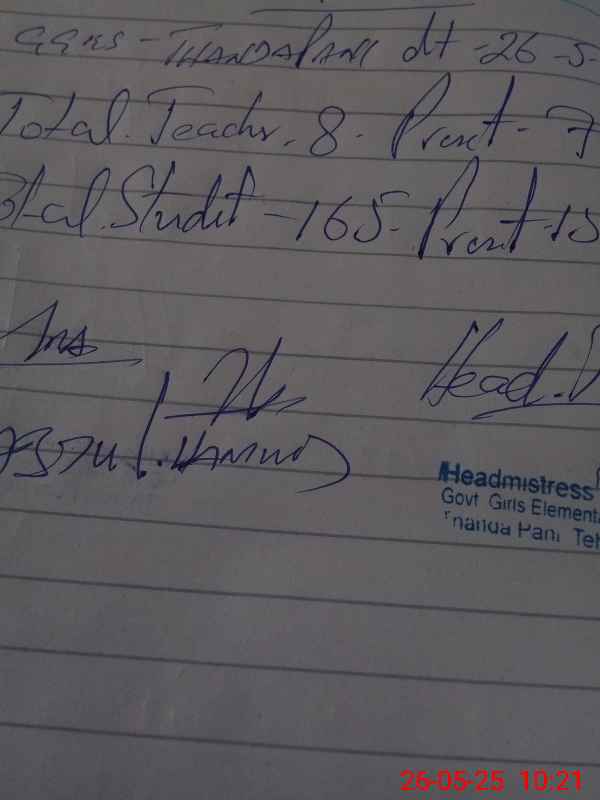 GGES - THANDAPANI dt - 26-5-
Total. Teachr. 8. Presnt - 7
Total. Studet - 165. Presnt - 15
Head.
ABDUL. HAMEED
Headmistress
Govt Girls Elementa
Thanda Pani Teh
26-05-25 10:21